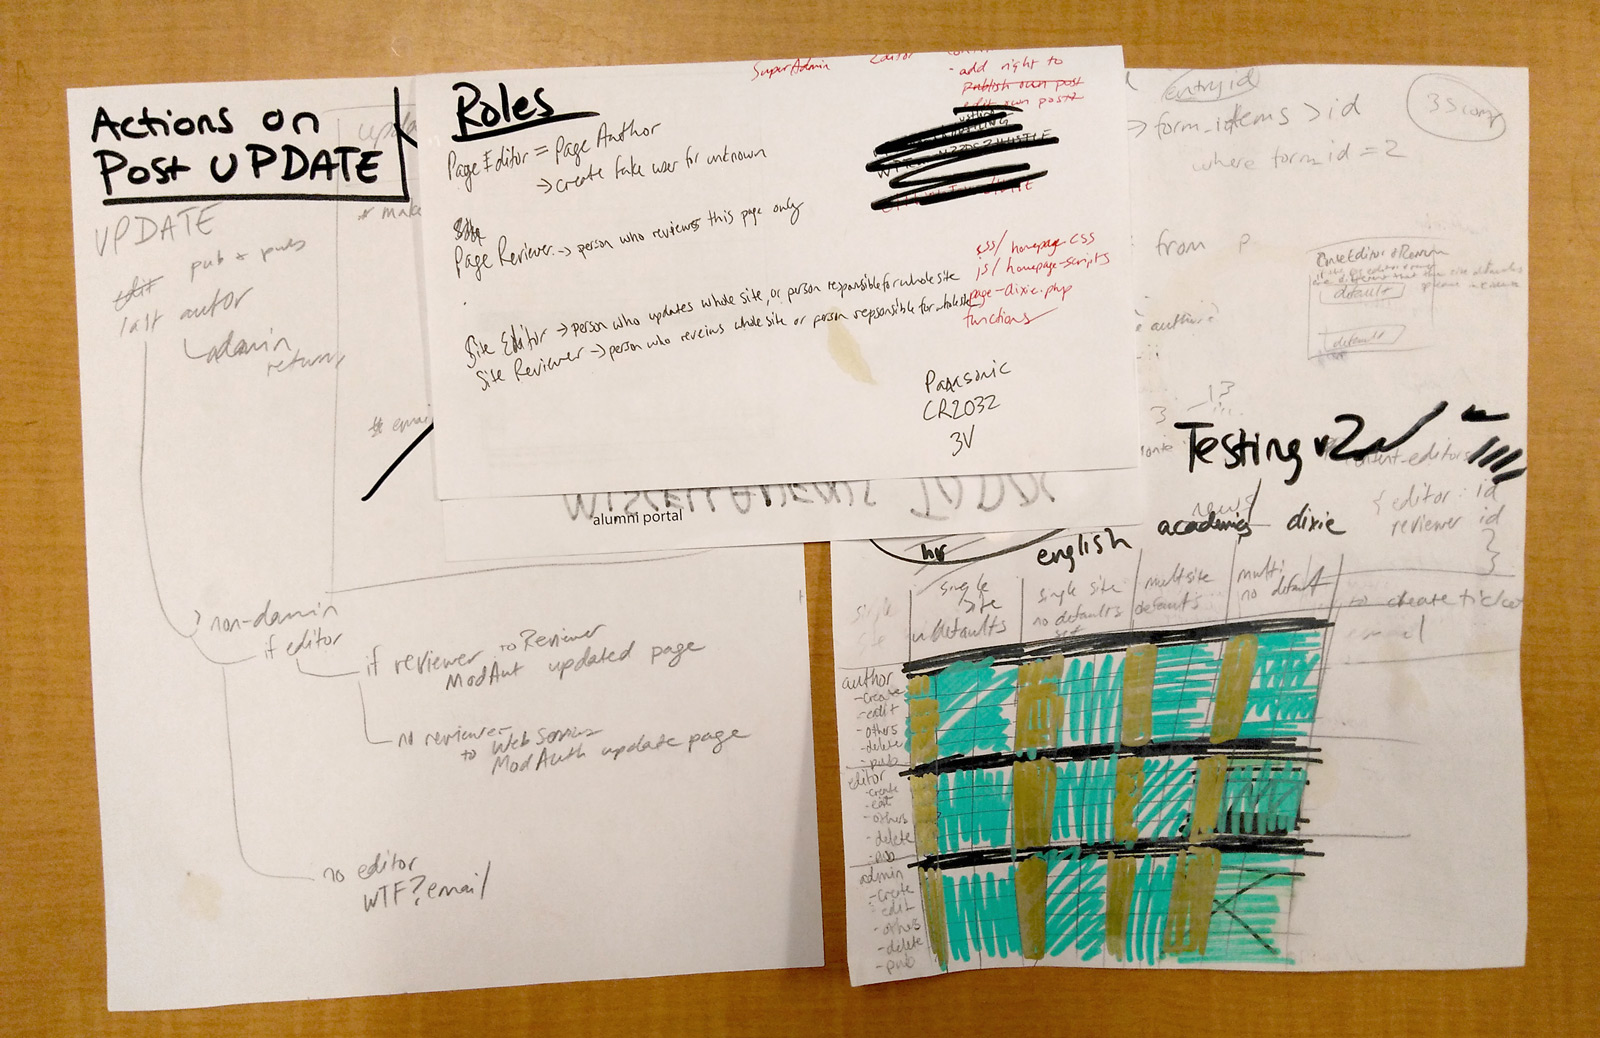 Actions on
Post UPDATE
UPDATE
edit pub + pub
last autor
admin
return
non-damin
if editor
if reviewer to Reviewer
ModAut updated page
no reviewer
to Web Services
ModAuth update page
no editor
WTF? email
* make
Roles
Page Editor = Page Author
→ create fake user for unknown
Page Reviewer → person who reviews this page only
Site Editor → person who updates whole site, or person responsible for whole site
Site Reviewer → person who reveiws whole site or person repsonsible for whole site
SuperAdmin Editor
- add right to
publish own post
edit own posts
css/homepage.css
js/homepage-scripts
page-dixie.php
functions
Panasonic
CR2032
3V
MISCELLANEOUS TODO
alumni portal
entry id
→ form_items > id
where form_id = 2
from p
default
default
13
3
Testing v2
content-editors
{ editor: id
reviewer id
}
}
news
hr english academics dixie
single site w defaults
single site no defaults set
multisite defaults
multi no default
to create ticket
email
author
- create
- edit
- others
- delete
- pub
editor
- create
- edit
- others
- delete
- pub
admin
- create
- edit
- others
- delete
- pub